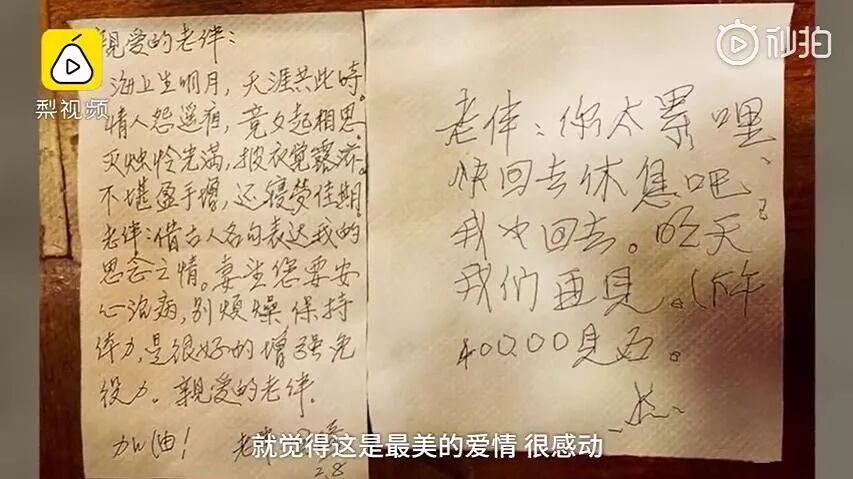 梨视频
秒拍
親爱的老伴:
海上生明月,天涯共此時。
情人怨遥夜,竟夕起相思。
灭烛怜光满,披衣觉露滋。
不堪盈手增,还寝梦佳期。
老伴:借古人名句表达我的
思念之情。妻望您要安
心治病,别煩燥保持
体力,是很好的增强免
疫力。親爱的老伴.
加油! 老伴
2.8
老伴:你太累哩、
快回去休息吧、
我也回去。明天
我们再見。(下午
見面。
就觉得这是最美的爱情 很感动